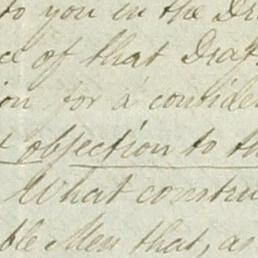 to you in the Dr
ce of that Draf
ion for a consider
t objection to th
What constru
ble Men that, as